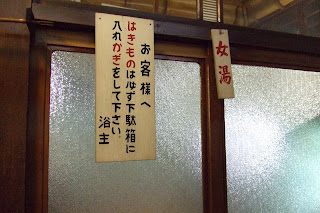 お客様へ
はきものは必ず下駄箱に
入れかぎをして下さい。
浴主
女湯